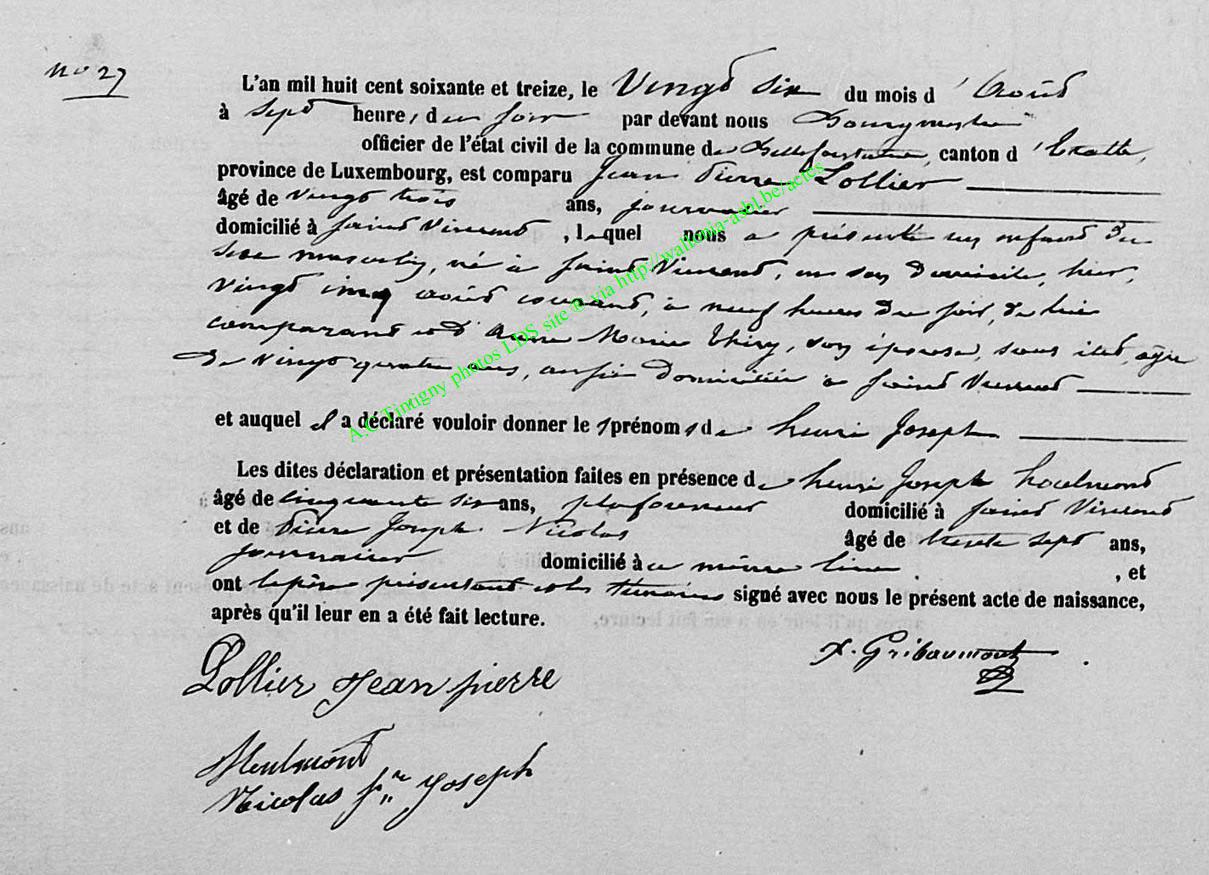 no 27
L'an mil huit cent soixante et treize, le Vingt six du mois d'Août
à Sept heures du soir par devant nous Bourgmestre
officier de l'état civil de la commune de Bellefontaine, canton d'Etalle,
province de Luxembourg, est comparu Jean Pierre Lollier
âgé de vingt trois ans, journalier
domicilié à Saint Vincent, lequel nous a présenté un enfant du
sexe masculin, né à Saint Vincent, en son domicile, hier,
vingt cinq août courant, à neuf heures du soir, de lui
comparant et d'Anne Marie Thiry, son épouse, sans état, agée
de vingt quatre ans, aussi domiciliée à Saint Vincent
et auquel il a déclaré vouloir donner les prénoms de Henri Joseph
Les dites déclaration et présentation faites en présence de Henri Joseph
âgé de cinquante six ans, plafonneur domicilié à Saint Vincent
et de Pierre Joseph Nicolas âgé de trente sept ans,
journalier domicilié à ce même lieu, et
ont le père présentant et les témoins signé avec nous le présent acte de naissance,
après qu'il leur en a été fait lecture.
Lollier Jean pierre
Nicolas prre Joseph
A.C Tintigny photos LDS site © via http://wallonia-asbl.be/actes